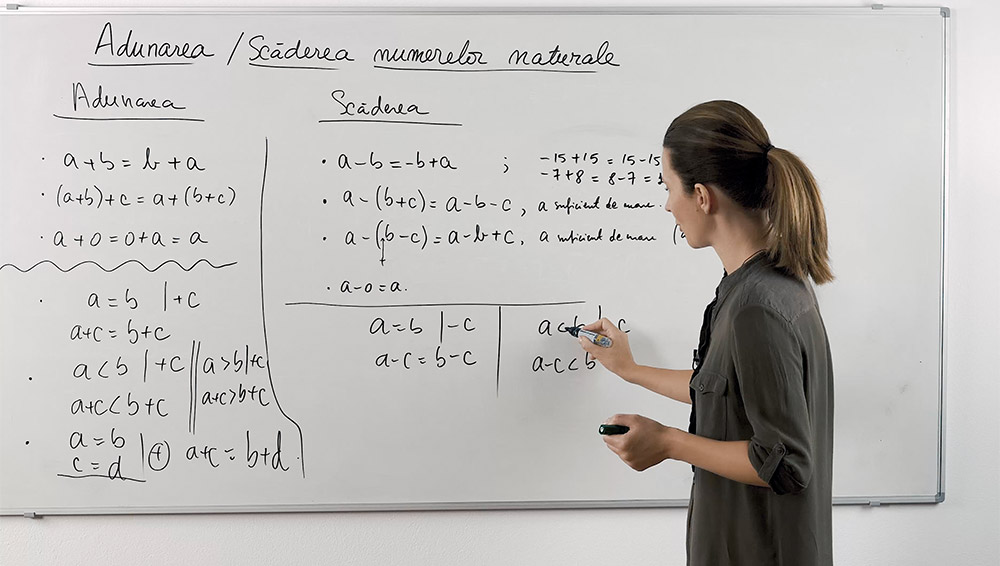 Adunarea / Scăderea numerelor naturale
Adunarea
· a+b = b+a
· (a+b)+c = a+(b+c)
· a+0 = 0+a = a
· a=b |+c
a+c = b+c
· a<b |+c || a>b |+c
a+c<b+c || a+c>b+c
· a=b
c=d | (+) a+c = b+d.
Scăderea
· a-b = -b+a ; -15+15 = 15-15
-7+8 = 8-7 =
· a-(b+c) = a-b-c, a suficient de mare
· a-(b-c) = a-b+c, a suficient de mare (
· a-0 = a.
a=b |-c
a-c = b-c
a<b | c
a-c<b